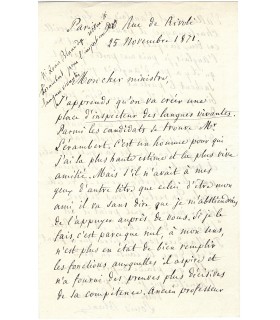 Paris, Rue de Rivoli
25 Novembre 1871.
Mon cher ministre,
J'apprends qu'on va créer une
place d'inspecteur des langues vivantes.
Parmi les candidats se trouve Mr.
Lévambert, c'est un homme pour qui
j'ai la plus haute estime et la plus vive
amitié. Mais s'il n'avait à mes
yeux d'autre titre que celui d'être mon
ami, il va sans dire que je m'abstiendrais
de l'appuyer auprès de vous. Si je le
fais, c'est parceque nul, à mon sens,
n'est plus en état de bien remplir
les fonctions auxquelles il aspire et
n'a fourni des preuves plus décisives
de sa compétence. Ancien professeur